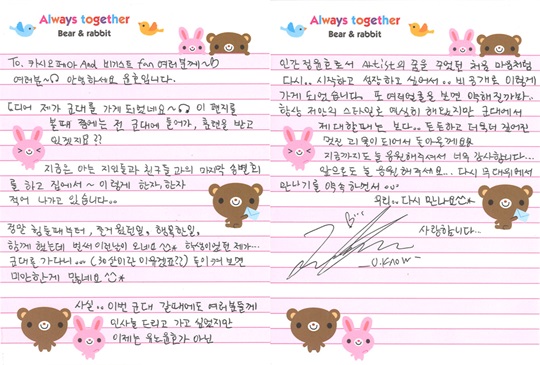 Always together
Bear & rabbit
To. 카시오페아 And 비기스트 fan 여러분께~
여러분~ 안녕하세요 윤호입니다.
드디어 제가 군대를 가게 되었네요~ 이 편지를
볼때 쯤에는 전 군대에 들어가, 훈련을 받고
있겠지요??
지금은 아는 지인들과 친구들과의 마지막 송별회
를 하고 집에서~ 이렇게 한자, 한자
적어 나가고 있습니다..
정말 힘들때부터, 즐거웠던일, 행복한일,
함께 했는데 벌써 이런날이 오네요 학생이었던 제가...
군대를 가다니.. (30살이란 돌이켜 보면
미안한게 많네요
사실.. 이번 군대 갈때에도 여러분들께
인사를 드리고 가고 싶었지만
이제는 유노윤호가 아닌
Always together
Bear & rabbit
인간 정윤호로서 Artist의 꿈을 꾸었던 처음 마음처럼
다시.. 시작하고 성장하고 싶어서.. 비공개로 이렇게
가게 되었습니다. 또 여러분들을 보면 약해질까봐..
항상 저만의 스타일로 열심히 해왔지만 군대에서
제대할때는 보다.. 든든하고 더욱더 깊어진
멋진 되어서 돌아올게요
지금까지도 늘 응원해주셔서 너무 감사합니다...
앞으로도 늘 응원해주세요... 다시 무대위에서
만나기를 약속하면서...
우리.. 다시 만나요
사랑합니다...
-U.know-